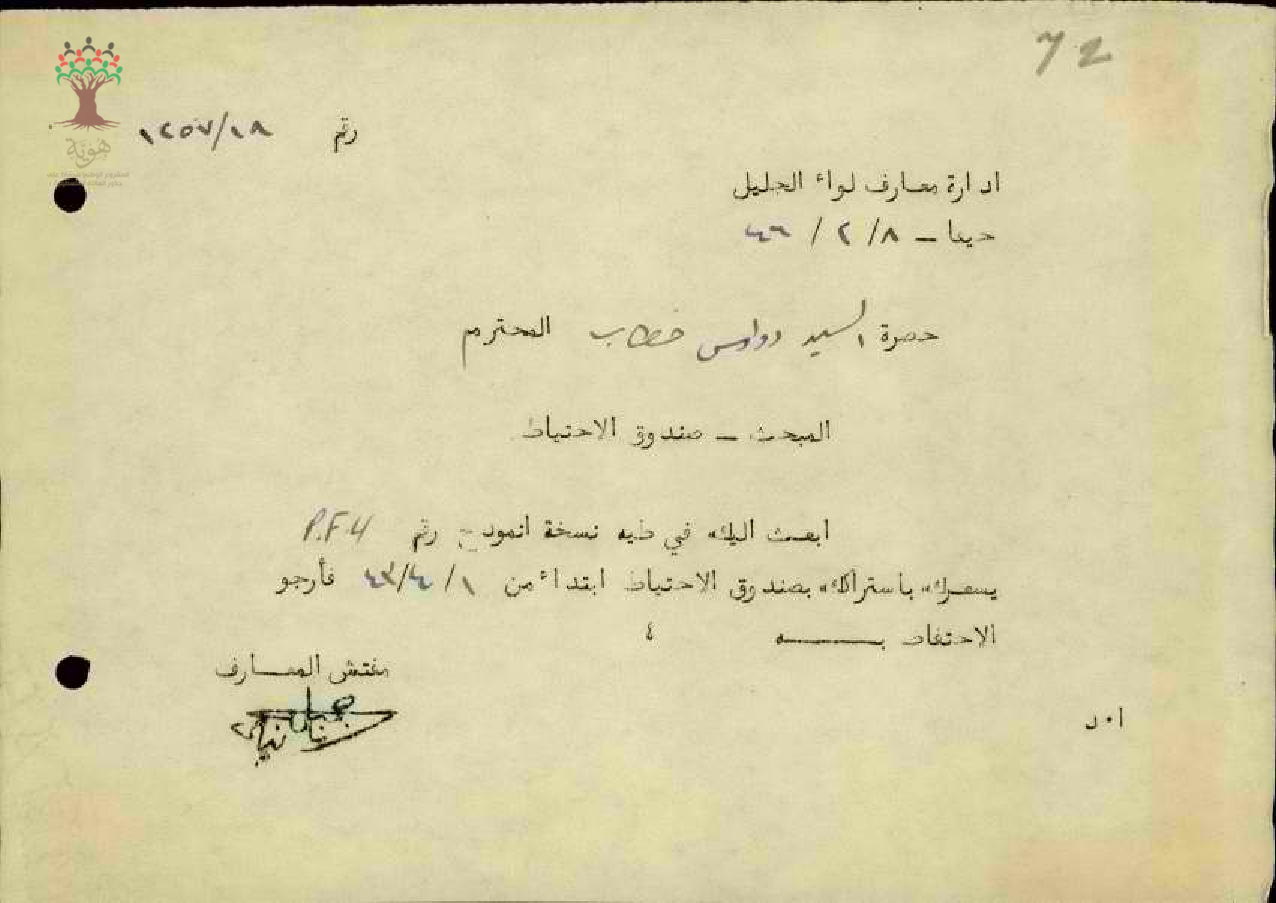 72
رقم ١٢٥٧/١٨
ادارة معارف لواء الجليل
حيفا – ٨/ ٢ / ٤٦
حضرة السيد خطاب المحترم
المبحث – صندوق الاحتياط
ابعث اليك في طيه نسخة انموذج رقم P.F.4
يشعرك باشتراكك بصندوق الاحتياط ابتداء من ١/ ٤/ ٤٣ فأرجو
الاحتفاظ بـــــه ؛
مفتش المعـــارف
ا.د
هوية